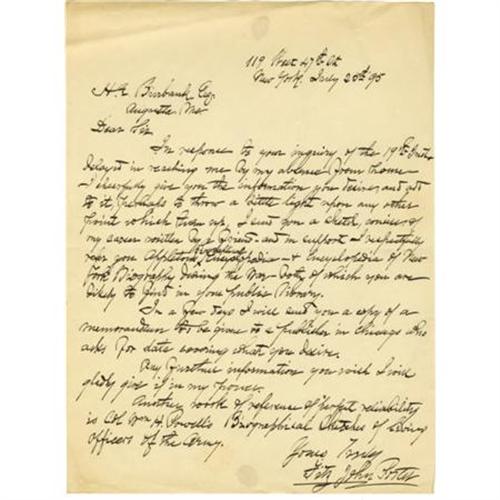 119 West 47th St
New York. July 25th 95
H A Burbank Esq.
Augusta Me
Dear Sir
In response to your inquiry of the 19th Inst
delayed in reaching me by my absence from home
I cheerfully give you the information you desire, and add
to it, perhaps to throw a little light upon any other
point which turn up, I send you a sketch, concise of
my career written by a friend and in support I respectfully
refer you Appletons Encyclopedia & Encyclopedia of New
York Biography during the War both of which you are
likely to find in your public library.
In a few days I will send you a copy of a
memorandum to be given to a publisher in Chicago who
asks for data covering what you desire.
Any further information you wish I will
gladly give if in my power.
Another book of reference of perfect reliability
is Col Wm H. Powell's Biographical Sketches of Living
officers of the Army.
Yours Truly
Fitz John Porter